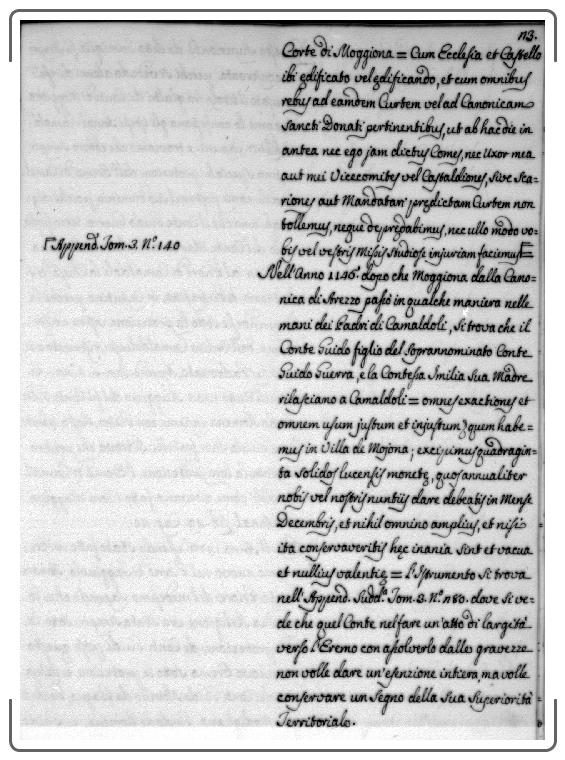 113.
Corte di Moggiona = Cum Ecclesia et Castello
ibi ędificato vel ędificando, et cum omnibus
rebus ad eamdem Curtem vel ad Canonicam
Sancti Donati pertinentibus, ut ab hac die in
antea nec ego jam dictus Comes, nec Uxor mea
aut mei Vicecomites vel Castaldiones, sive Sca=
riones aut Mandatarj prędictam Curtem non
tollemus, neque deprędabimus, nec ullo modo vo=
bis vel vestris Missis Studiose injuriam faciemus =
Append. Tom. 3. N.º 140
Nell'Anno 1146. dopo che Moggiona dalla Cano=
nica di Arezzo passò in qualche maniera nelle
mani dei Padri di Camaldoli, si trova che il
Conte Guido figlio del soprannominato Conte
Guido Guerra, e la Contessa Imilia Sua Madre
rilasciano a Camaldoli = omnes exactiones et
omnem usum justum et injustum, quem habe=
mus in Villa de Mojona; excipimus quadragin=
ta solidos lucensis monetę, quos annualiter
nobis vel nostris nuntiis dare debeatis in Mense
Decembris, et nihil omnino amplius, et nisi
ita conservaveritis hęc inania sint et vacua
et nullius valentię = l'Istrumento si trova
nell'Append. Sudd.ª Tom. 3. N.º 180. dove si ve=
de che quel Conte nel fare un'atto di largità
verso l'Eremo con assolverlo dalle gravezze
non volle dare un'esenzione intiera, ma volle
conservare un Segno della Sua Superiorità
Territoriale.